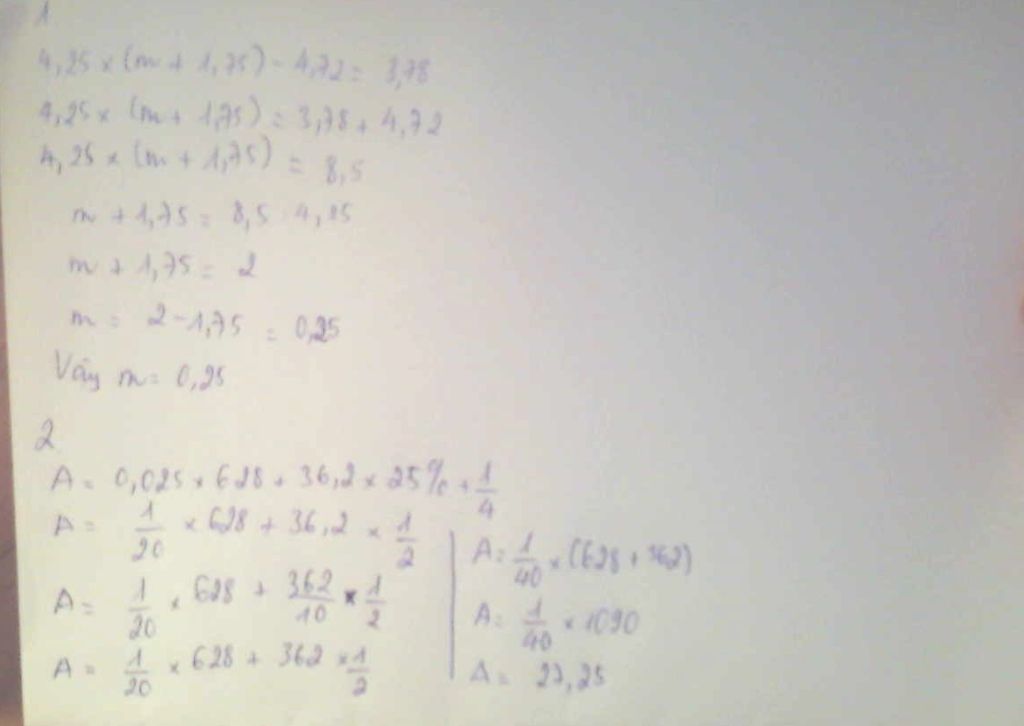 1
4,25 × (m + 1,75) - 4,72 = 3,78
4,25 × (m + 1,75) = 3,78 + 4,72
4,25 × (m + 1,75) = 8,5
m + 1,75 = 8,5 : 4,25
m + 1,75 = 2
m = 2 - 1,75 = 0,25
Vậy m = 0,25
2
A = 0,025 × 628 + 36,2 × 25% + 1/4
A = 1/20 × 628 + 36,2 × 1/2
A = 1/20 × 628 + 362/10 × 1/2
A = 1/20 × 628 + 362 × 1/2
A = 1/40 × (628 + 362)
A = 1/40 × 1090
A = 27,25